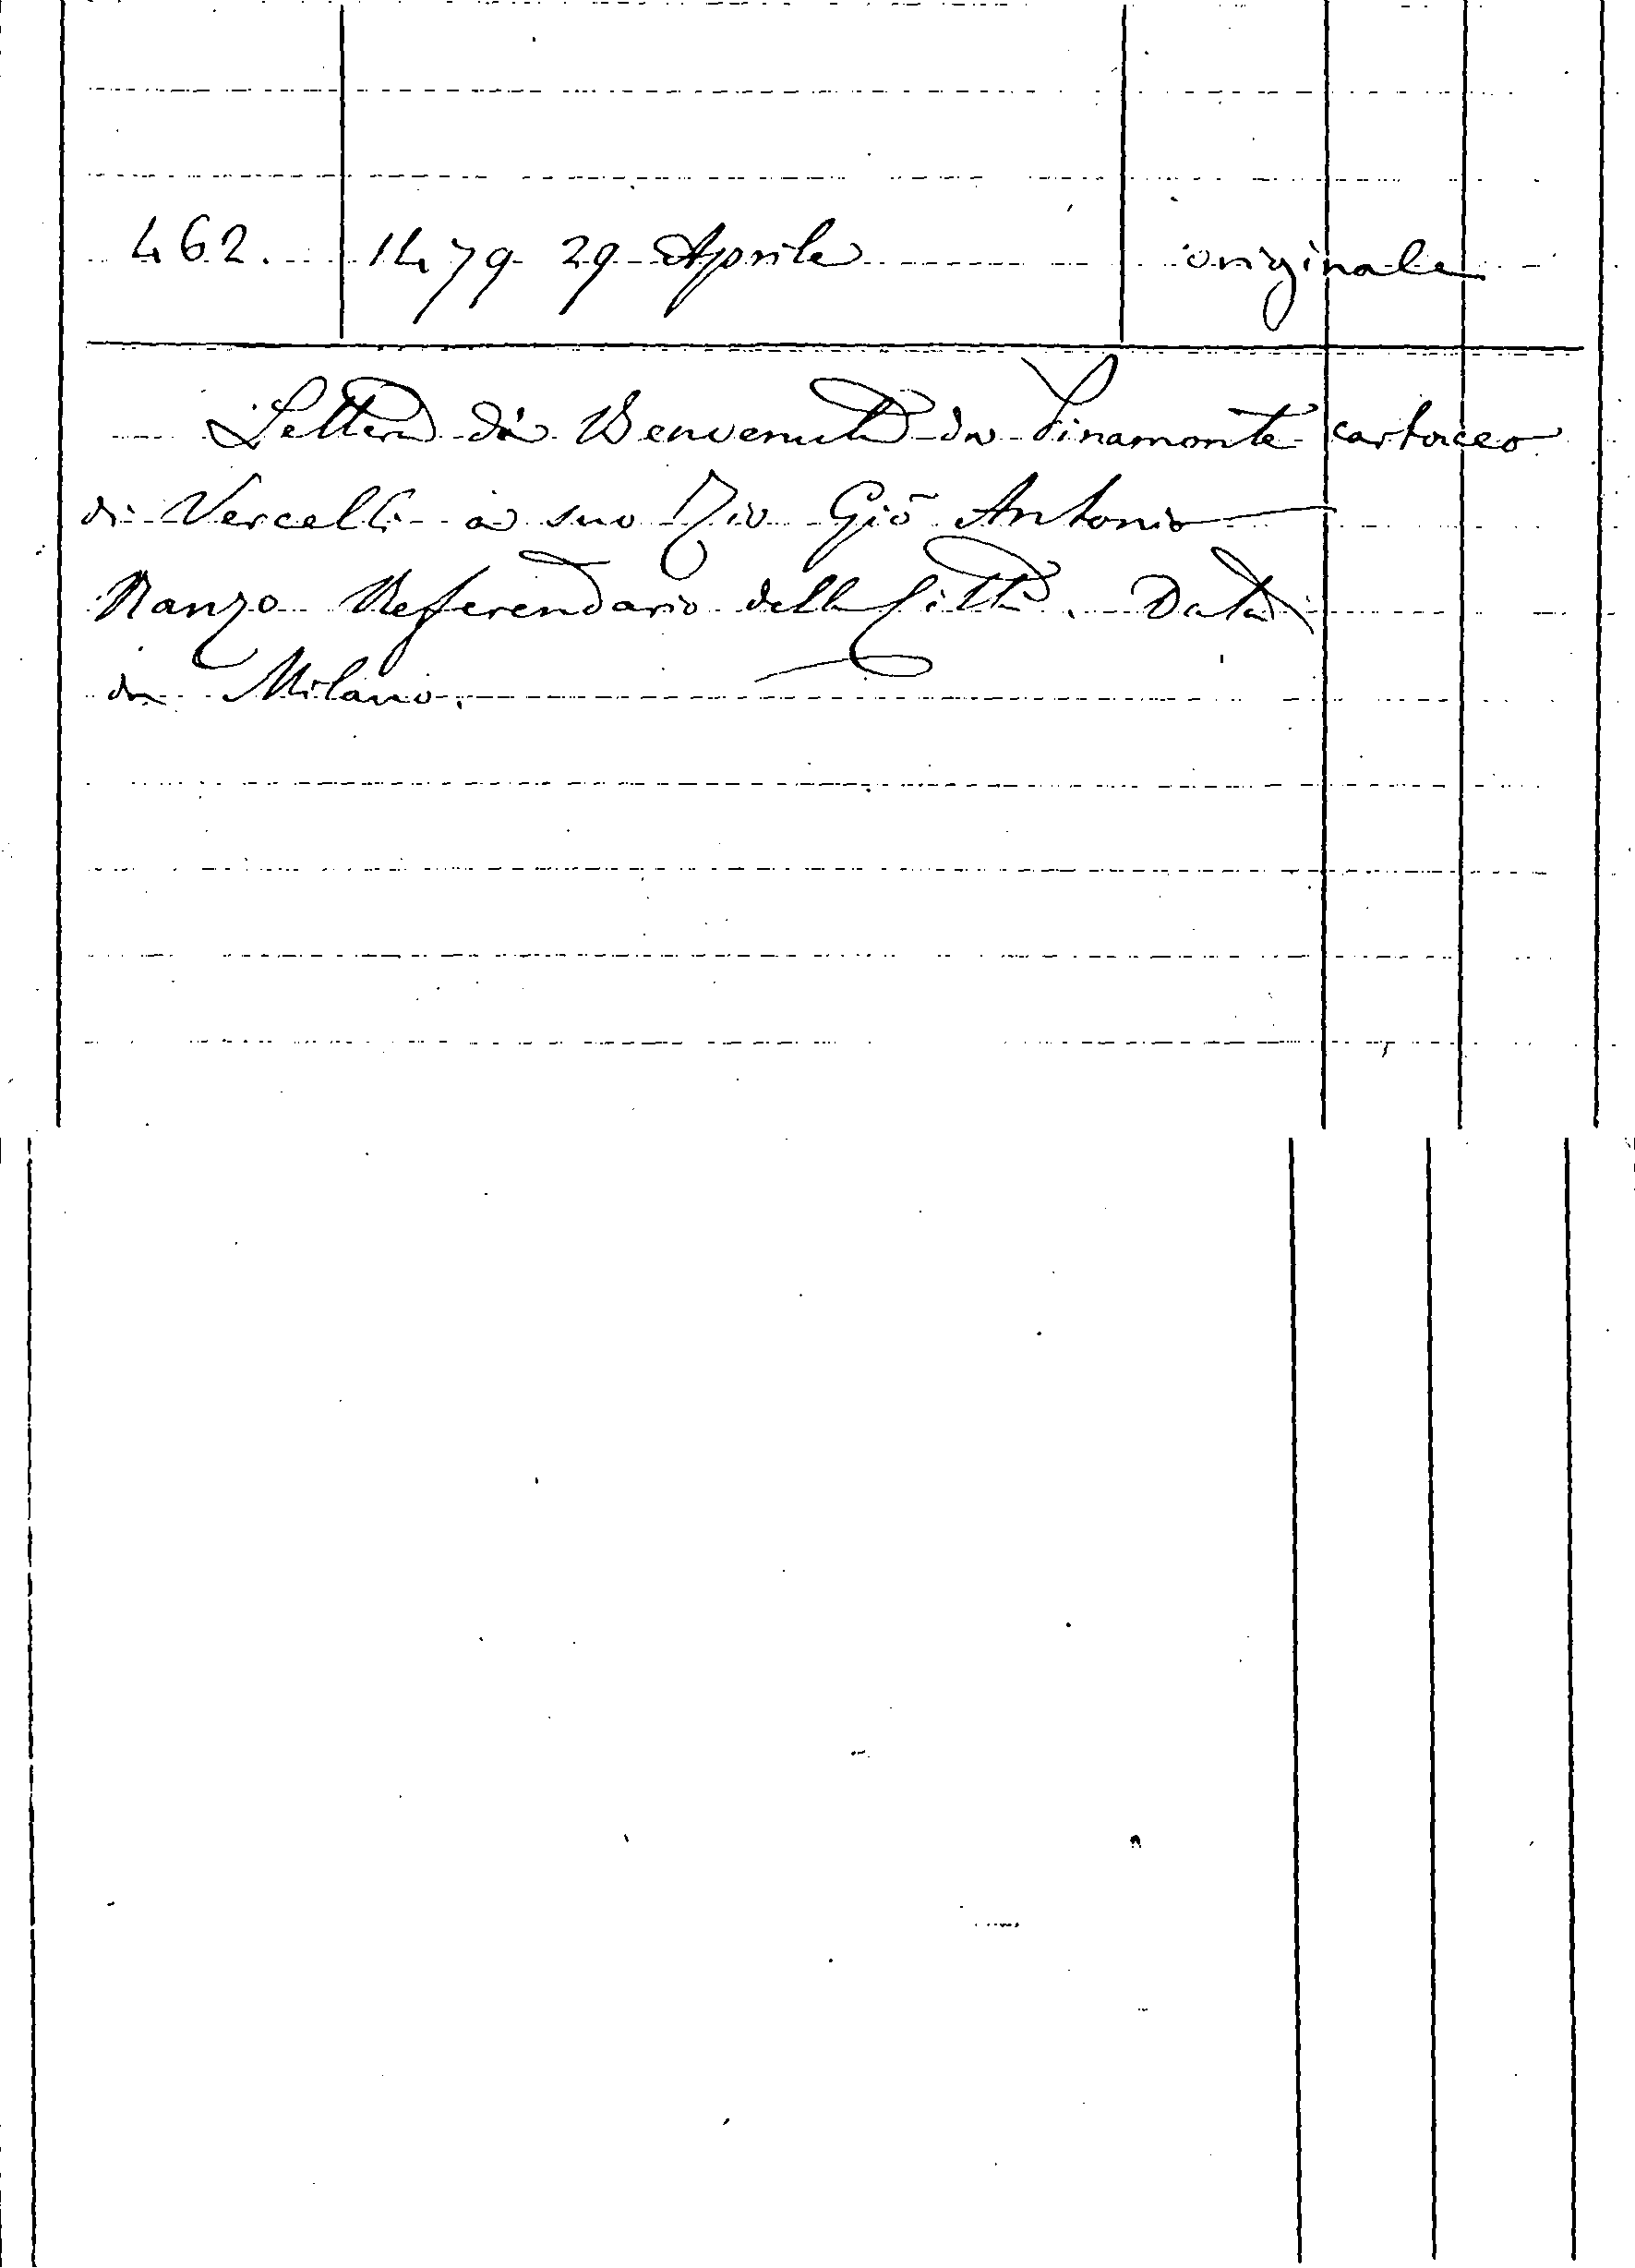 462. 1479 29 Aprile originale
Lettera di Benvenuto da Pinamonte cartaceo
di Vercelli a suo Zio Giõ Antonio
Ranzo Referendario della Città. Data
da Milano.